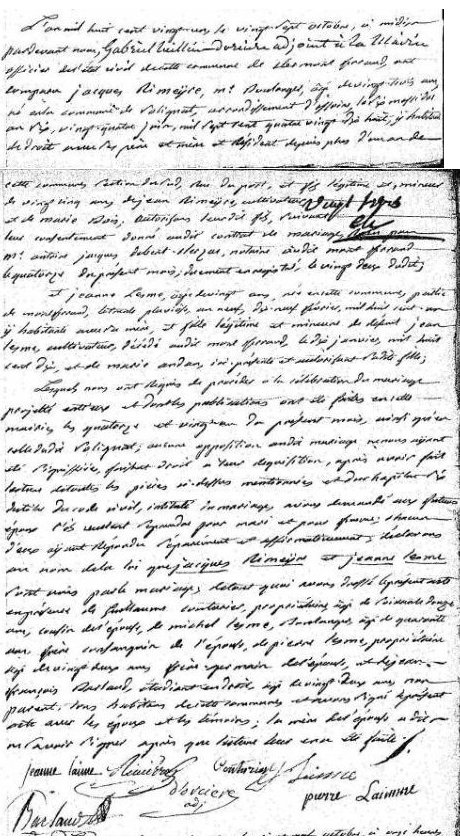 L'an mil huit cent vingt un, le vingt sept octobre, à midi
pardevant nous, Gabriel d'orcière adjoint à la Mairie
officier de l'état civil de cette commune de clermont ferrand, ont
comparu jacques Rimeÿre, m.d Boulanger, âgé de vingt trois ans,
né à la commune de Solignat, arrondissement d'issoire, le six messidor
an six, vingt quatre juin, mil sept cent quatre vingt dix huit; ÿ habitant
de droit avec ses père et mère et résident depuis plus d'un an de
cette commune, section du sud, rue du port, et fils légitime et, mineur
de vingt cinq ans, de jean Rimeÿre, cultivateur,
et de marie Bois, autorisans leur dit fils, suivant
leur consentement donné audit contrat de mariage, reçu par
m.e antoine jacques notaire audit mont ferrand
le quatorze du présent mois; duement enregistré, le vingt deux dudit;
et jeanne Lesme, âgée de vingt ans, née en cette commune, partie
de montferrand, le trente pluviose, an neuf, dix neuf février, mil huit cent un
ÿ habitante avec sa mère, et fille légitime et mineure de défunt jean
Lesme, cultivateur, décédé audit mont ferrand, le dix janvier, mil huit
cent dix, et de marie andan, ici présente et autorisant sadite fille;
Lesquels nous ont requis de procéder à la célébration du mariage
projetté entr'eux et dont les publications ont été faites en cette
mairie, les quatorze et vingt un du présent mois, ainsi qu'en
celle dudit Solignat; aucune opposition audit mariage ne nous aÿant
été signifiée, faisant droit à leur réquisition, après avoir fait
lecture de toutes les pièces ci-dessus mentionnées et du chapitre six
du titre du code civil, intitulé du mariage, avons demandé aux futurs
époux s'ils veulent se prendre pour mari et pour femme; chacun
d'eux aÿant répondu séparément et affirmativement; déclarons
au nom de la loi que jacques Rimeÿre et jeanne Lesme
sont unis par le mariage; de tout quoi avons dressé le présent acte
en présence de Guillaume propriétaire, âgé de soixante douze
ans, cousin de l'épouse, de michel Lesme, Boulanger, âgé de quarante
ans frère consanguin de l'épouse, de pierre Lesme, propriétaire
âgé de vingt deux ans frère germain de l'épouse, et de jean-
françois Barland, étudiant en droit, âgé de vingt deux ans non
parent; tous habitans de cette commune et avons signé le présent
acte avec les époux et les témoins; la mère de l'épouse a dit
ne savoir signer après que lecture leur en a été faite.
jeanne laime Rimeÿre
D'orcière
adj
pierre Laimme
Barland